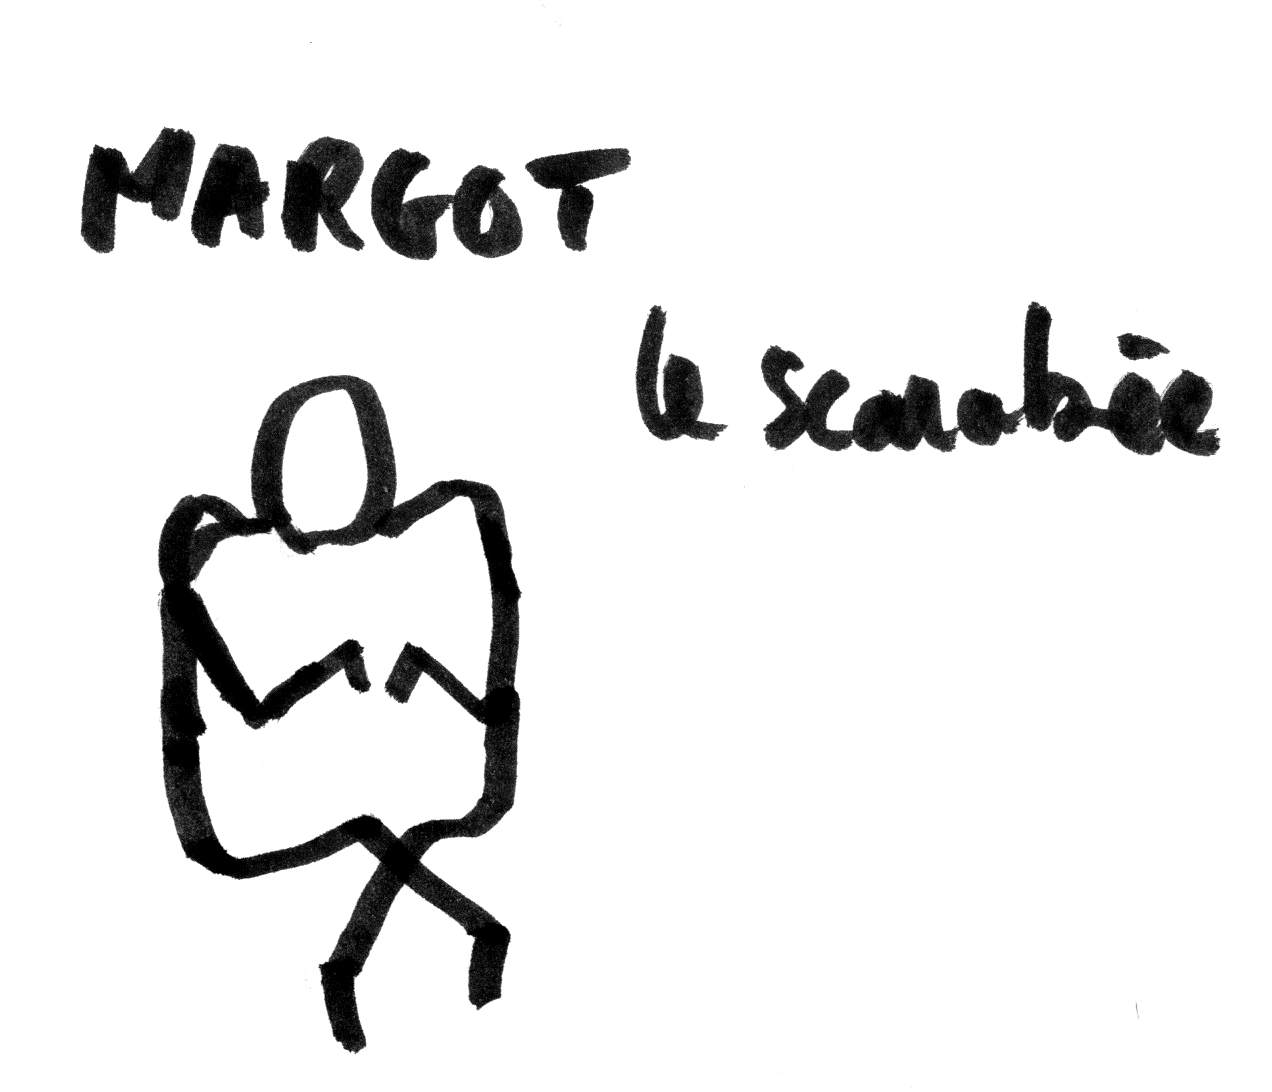 MARGOT
le scarabée